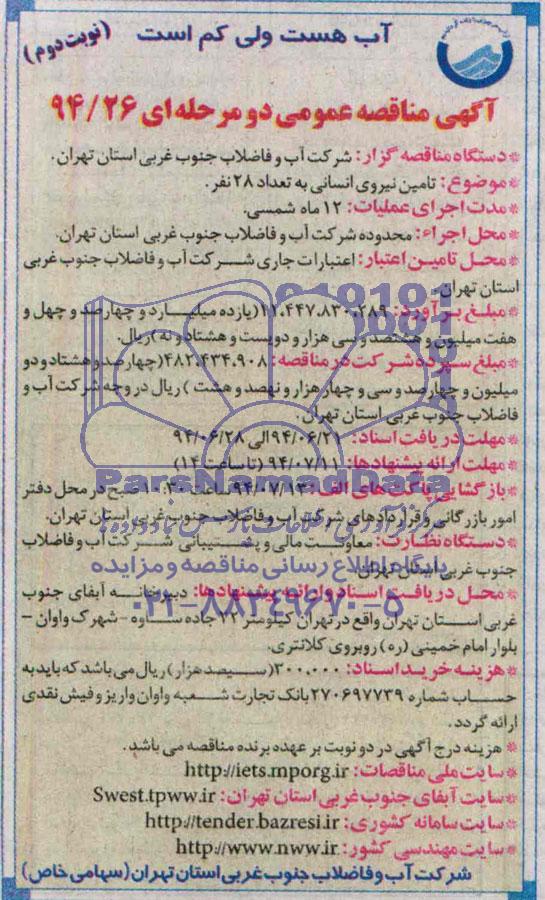 آب هست ولی کم است
(نوبت دوم)
آگهی مناقصه عمومی دو مرحله ای ۹۴/۲۶
* دستگاه مناقصه گزار: شرکت آب و فاضلاب جنوب غربی استان تهران.
* موضوع: تامین نیروی انسانی به تعداد ۲۸ نفر.
* مدت اجرای عملیات: ۱۲ ماه شمسی.
* محل اجراء: محدوده شرکت آب و فاضلاب جنوب غربی استان تهران.
* محل تامین اعتبار: اعتبارات جاری شرکت آب و فاضلاب جنوب غربی
استان تهران.
* مبلغ برآورد: ۱۱.۴۴۷.۸۳۰.۲۸۹ (یازده میلیارد و چهارصد و چهل و
هفت میلیون و هشتصد و سی هزار و دویست و هشتاد و نه) ریال.
* مبلغ سپرده شرکت در مناقصه: ۴۸۲.۴۳۴.۹۰۸ (چهارصد و هشتاد و دو
میلیون و چهارصد و سی و چهار هزار و نهصد و هشت) ریال در وجه شرکت آب و
فاضلاب جنوب غربی استان تهران.
* مهلت دریافت اسناد: ۹۴/۰۶/۲۱ الی ۹۴/۰۶/۲۸
* مهلت ارائه پیشنهادها: ۹۴/۰۷/۱۱ (تا ساعت ۱۴)
* بازگشایی پاکت های الف: ۹۴/۰۷/۱۳ ساعت ۱۰:۳۰ صبح در محل دفتر
امور بازرگانی و قراردادهای شرکت آب و فاضلاب جنوب غربی استان تهران.
* دستگاه نظارت: معاونت مالی و پشتیبانی شرکت آب و فاضلاب
جنوب غربی استان تهران.
* محل دریافت اسناد و ارائه پیشنهادها: دبیرخانه آبفای جنوب
غربی استان تهران واقع در تهران کیلومتر ۲۲ جاده ساوه - شهرک واوان -
بلوار امام خمینی (ره) روبروی کلانتری.
* هزینه خرید اسناد: ۳۰۰.۰۰۰ (سیصد هزار) ریال می باشد که باید به
حساب شماره ۲۷۰۶۹۷۷۳۹ بانک تجارت شعبه واوان واریز و فیش نقدی
ارائه گردد.
* هزینه درج آگهی در دو نوبت بر عهده برنده مناقصه می باشد.
* سایت ملی مناقصات: http://iets.mporg.ir
* سایت آبفای جنوب غربی استان تهران: Swest.tpww.ir
* سایت سامانه کشوری: http://tender.bazresi.ir
* سایت مهندسی کشور: http://www.nww.ir
شرکت آب و فاضلاب جنوب غربی استان تهران (سهامی خاص)
ParsNamadData
پایگاه اطلاع رسانی مناقصه و مزایده
۰۲۱-۸۸۳۴۹۶۷۰-۵